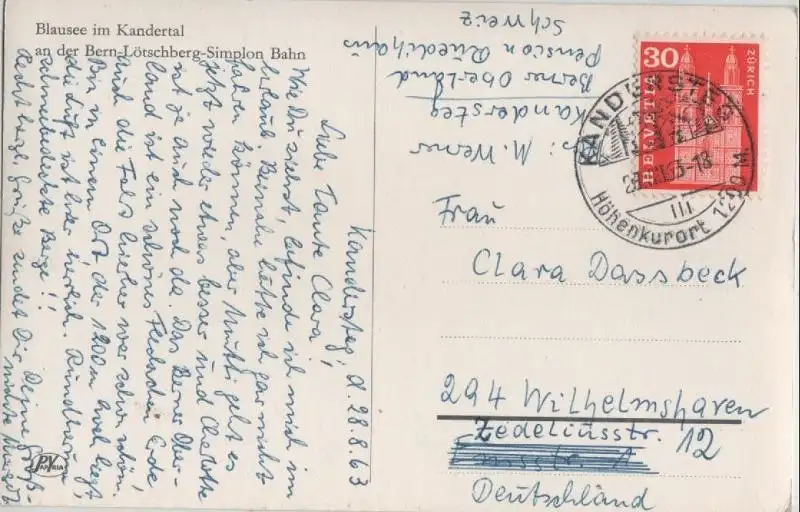 Blausee im Kandertal
an der Bern-Lötschberg-Simplon Bahn
Kandersteg, d. 28.8.63
Liebe Tante Clara!
Wie Du siehst, befinde ich mich im
Urlaub. Beinahe hätte ich gar nicht
fahren können, aber Mutti geht es
jetzt wieder etwas besser und Charlotte
ist ja auch noch da. Das Berner Ober-
land ist ein schönes Fleckchen Erde
und die Fahrt hierher war schon schön.
Bin in einem Ort der 1200 m hoch liegt,
die Luft ist hier herrlich. Rundherum
schneebedeckte Berge!!
Recht herzl. Grüße sendet Dir Deine Groß-
nichte
PV
PAPYRIA
M. Werner
Kandersteg
Berner Oberland
Pension Ruedihaus
Schweiz
30
HELVETIA
ZÜRICH
KANDERSTEG
63-18
III
Höhenkurort 1200 M
Frau
Clara Dassbeck
294 Wilhelmshaven
Zedeliusstr. 12
Deutschland